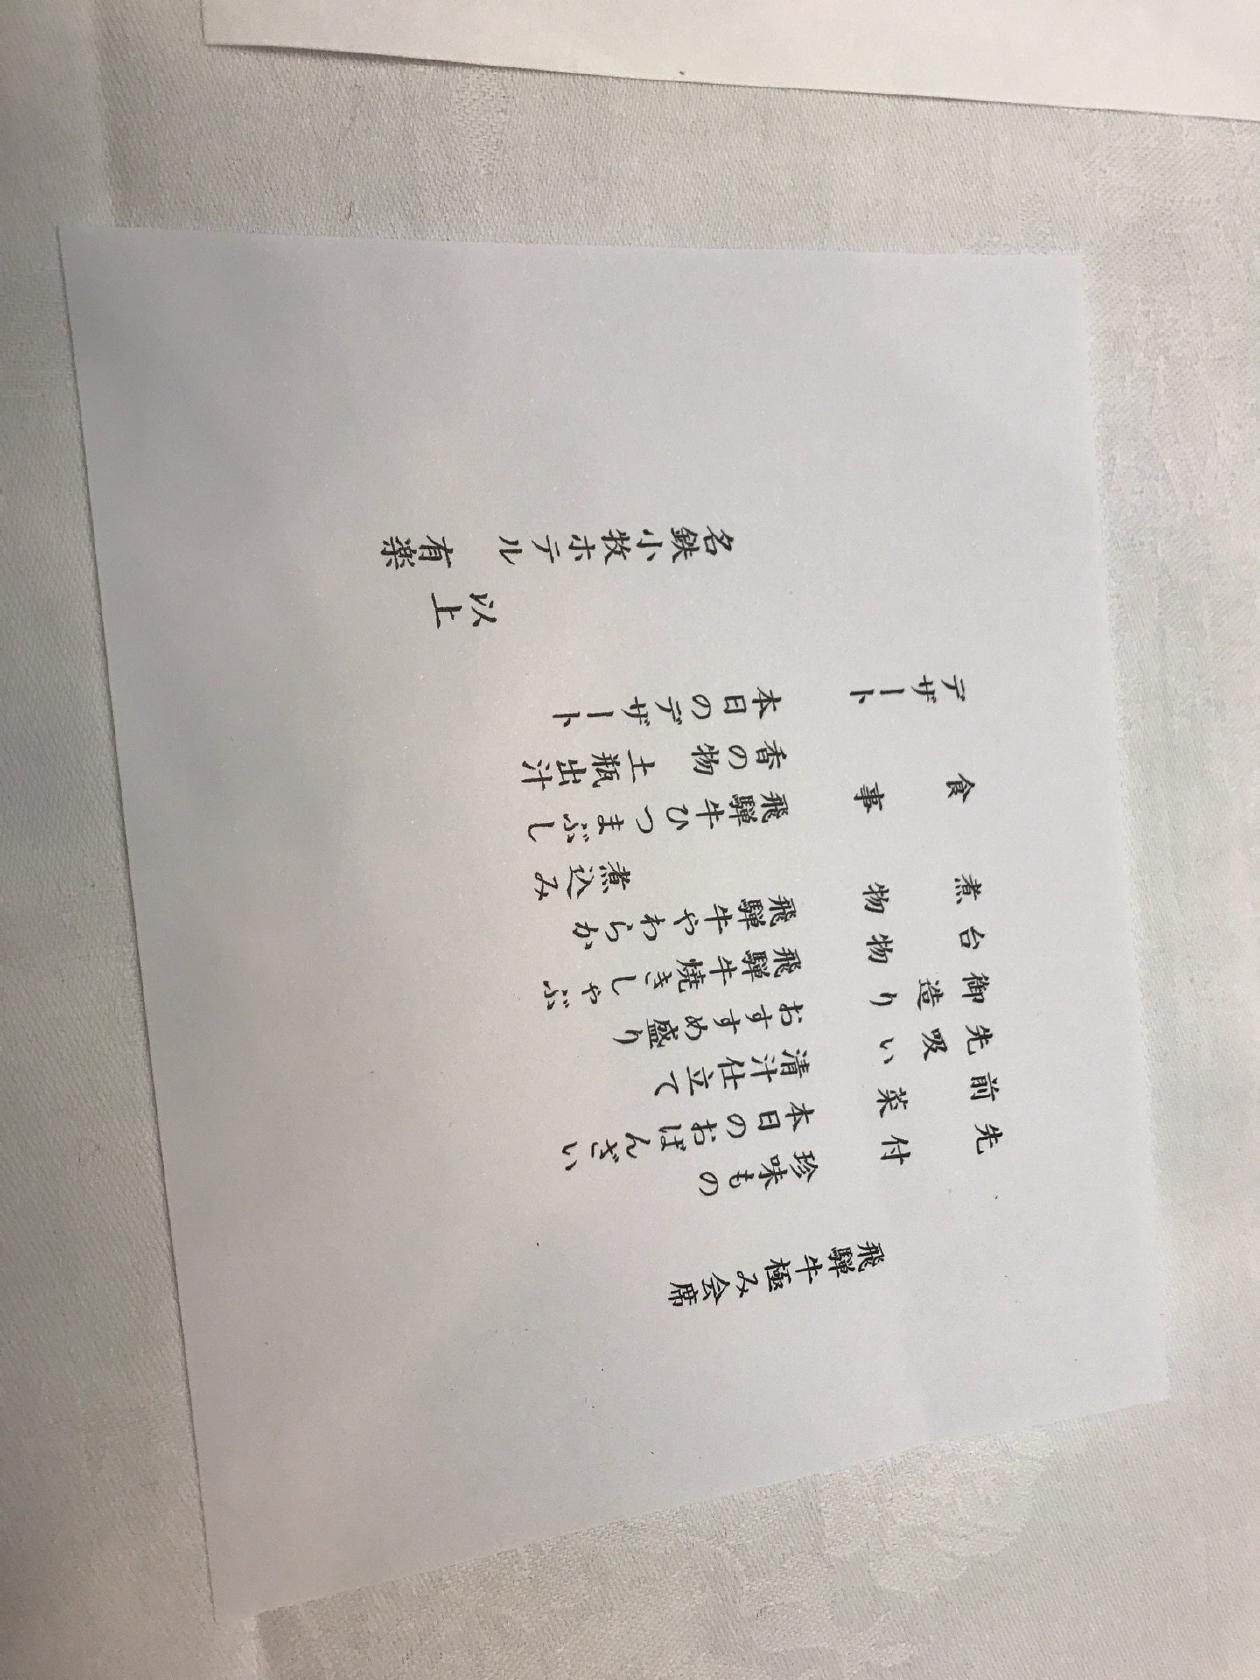 飛騨牛極み会席
先付 珍味もの
前菜 本日のおばんざい
先吸い 清汁仕立て
御造り おすすめ盛り
台物 飛騨牛焼きしゃぶ
煮物 飛騨牛やわらか
煮込み
食事 飛騨牛ひつまぶし
香の物 土瓶出汁
デザート 本日のデザート
以上
名鉄小牧ホテル 有楽